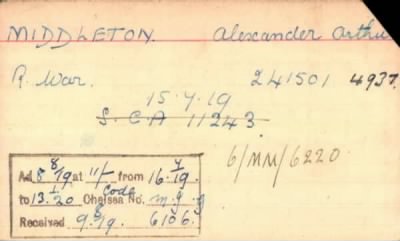 MIDDLETON. Alexander Arthu
R. War. 241501 4937.
15.4.19
S.C.A 11243
6/MM/6220
Ad 8/8/19 at 11/- from 16.4/19.
to 13.1/20 Code Chelsea No. m.g.g
Received 9.8/19. 6106.